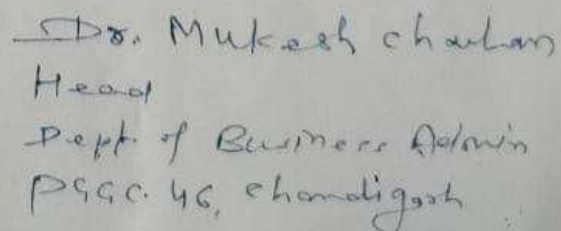 Dr. Mukesh Chauhan
Head
Dept. of Business Admin
PGGC. 46, Chandigarh